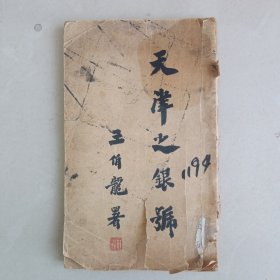 天津之銀號
王脩龍署
1194